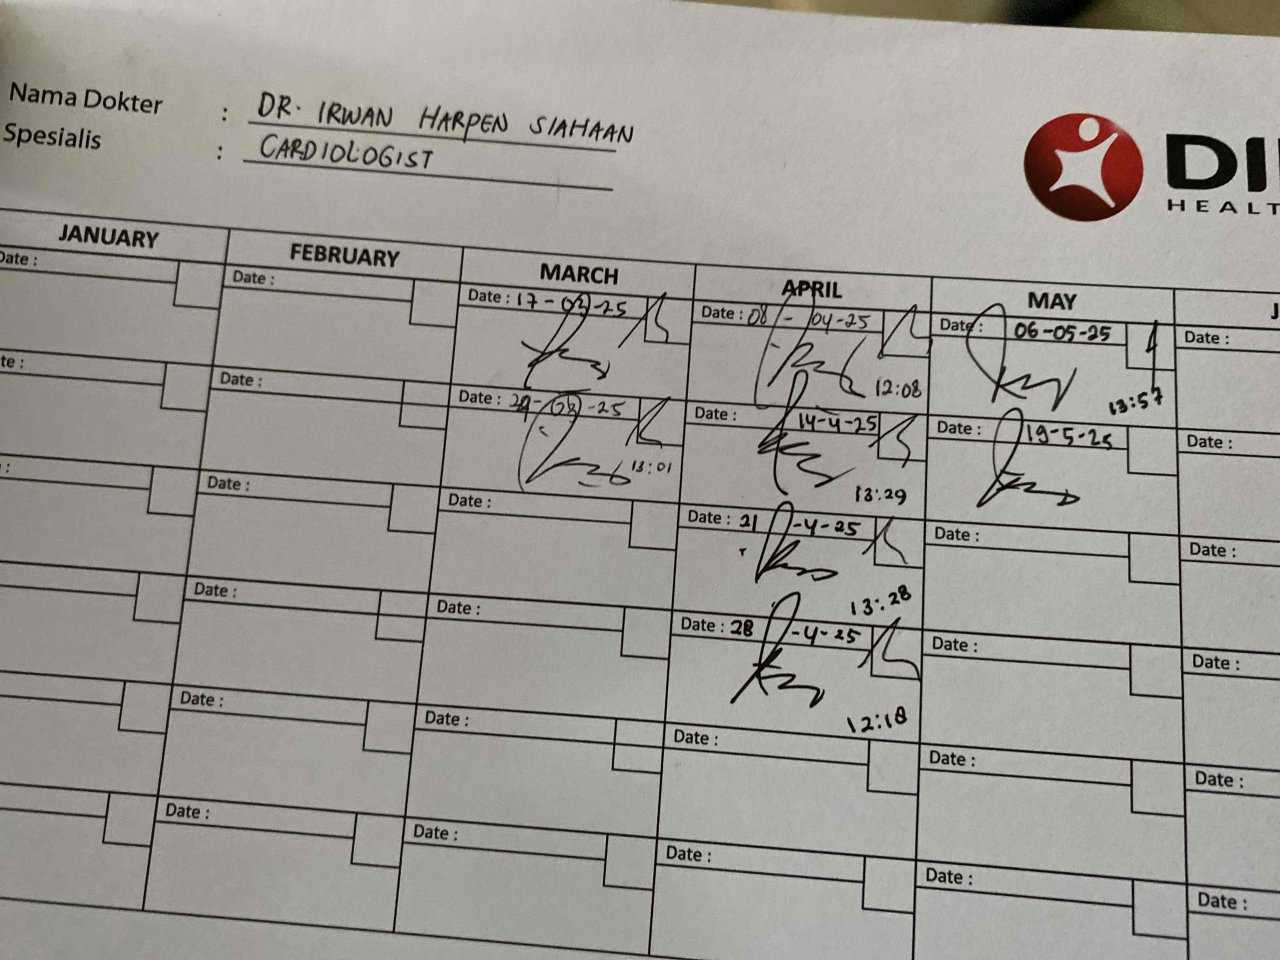 Nama Dokter : DR. IRWAN HARPEN SIAHAAN
Spesialis : CARDIOLOGIST
DI
HEALT
JANUARY FEBRUARY MARCH APRIL MAY J
Date : Date : Date : 17-03-25 Date : 08-04-25 Date : 06-05-25 Date :
12:08 13:57
te : Date : Date : -03-25 Date : 14-4-25 Date : 19-5-25 Date :
13:01 13:29
: Date : Date : Date : 21-4-25 Date : Date :
13:28
Date : Date : Date : 28-4-25 Date : Date :
12:18
Date : Date : Date : Date : Date :
Date : Date : Date : Date : Date :